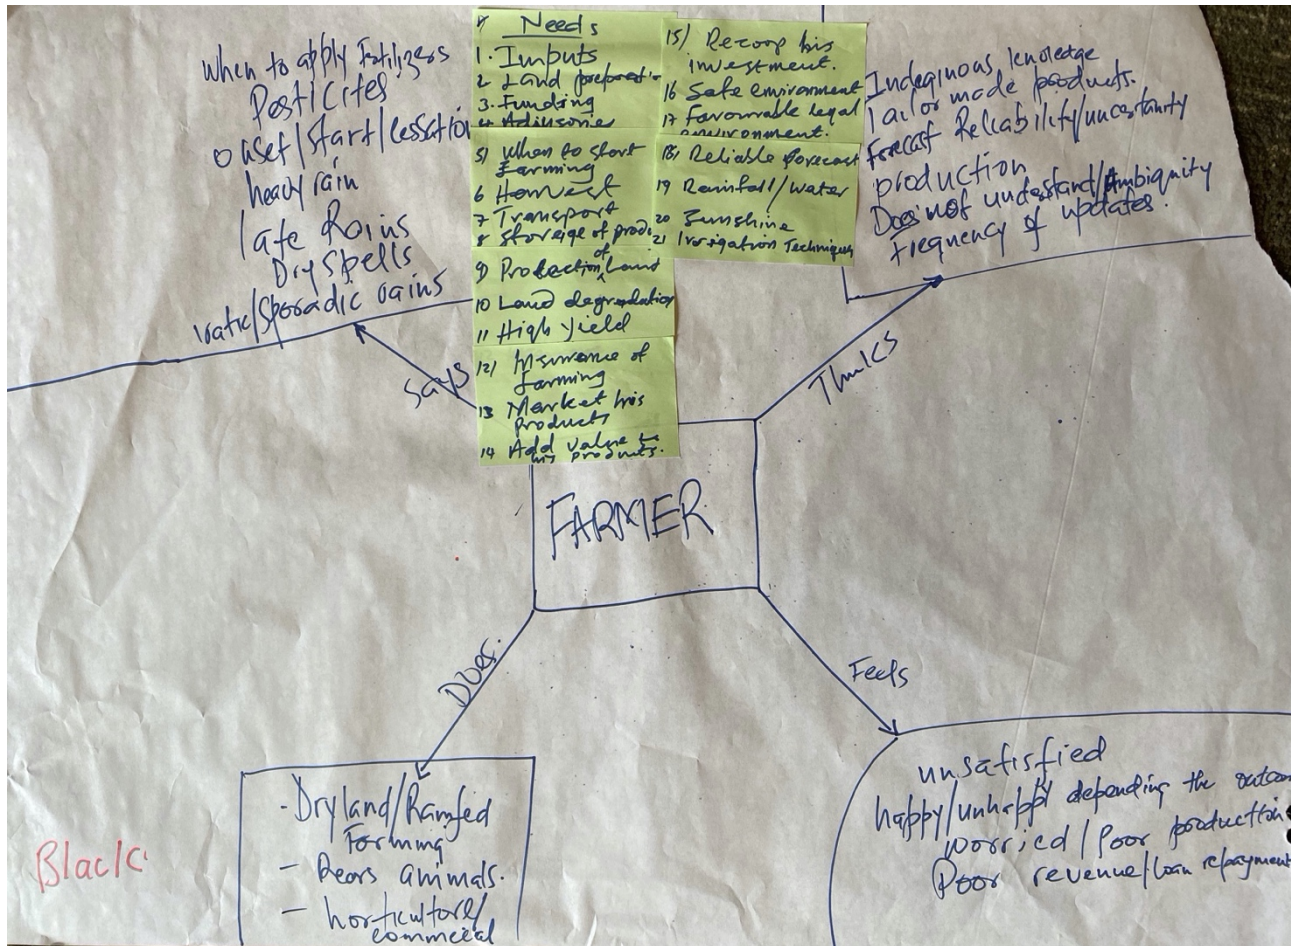 When to apply Fertilizers
Pesticites
onset/start/cessation
heavy rain
late Rains
Dry spells
ratic/Sporadic rains
Says
Needs
1. Inputs
2 Land preparatio
3. Funding
4 Advisories
5) When to start
farming
6 Harvest
7 Transport
8 Storeige of produ
9) Protection of Land
10 Land degradation
11 High yield
12) Insurance of
farming
13 Market his
products
14 Add value to
his products.
15) Recoop his
investment.
16 Safe environment
17 Favourable legal
environment.
18) Reliable forecast
19 Rainfall/water
20 Sunshine
21 Irrigation Techniques
Indeginous knoledge
Tailor made products.
Forecast Reliability/uncertanity
production
Does not understant/Ambiquity
Frequency of updates.
Thinks
FARMER
Does.
- Dryland/Rainfed
Farming
- Rears animals.
- horticulture/
commercial
Feels
unsatisfied
happy/unhappy depending the outcom
worried/Poor production
Poor revenue/loan repayment
Black